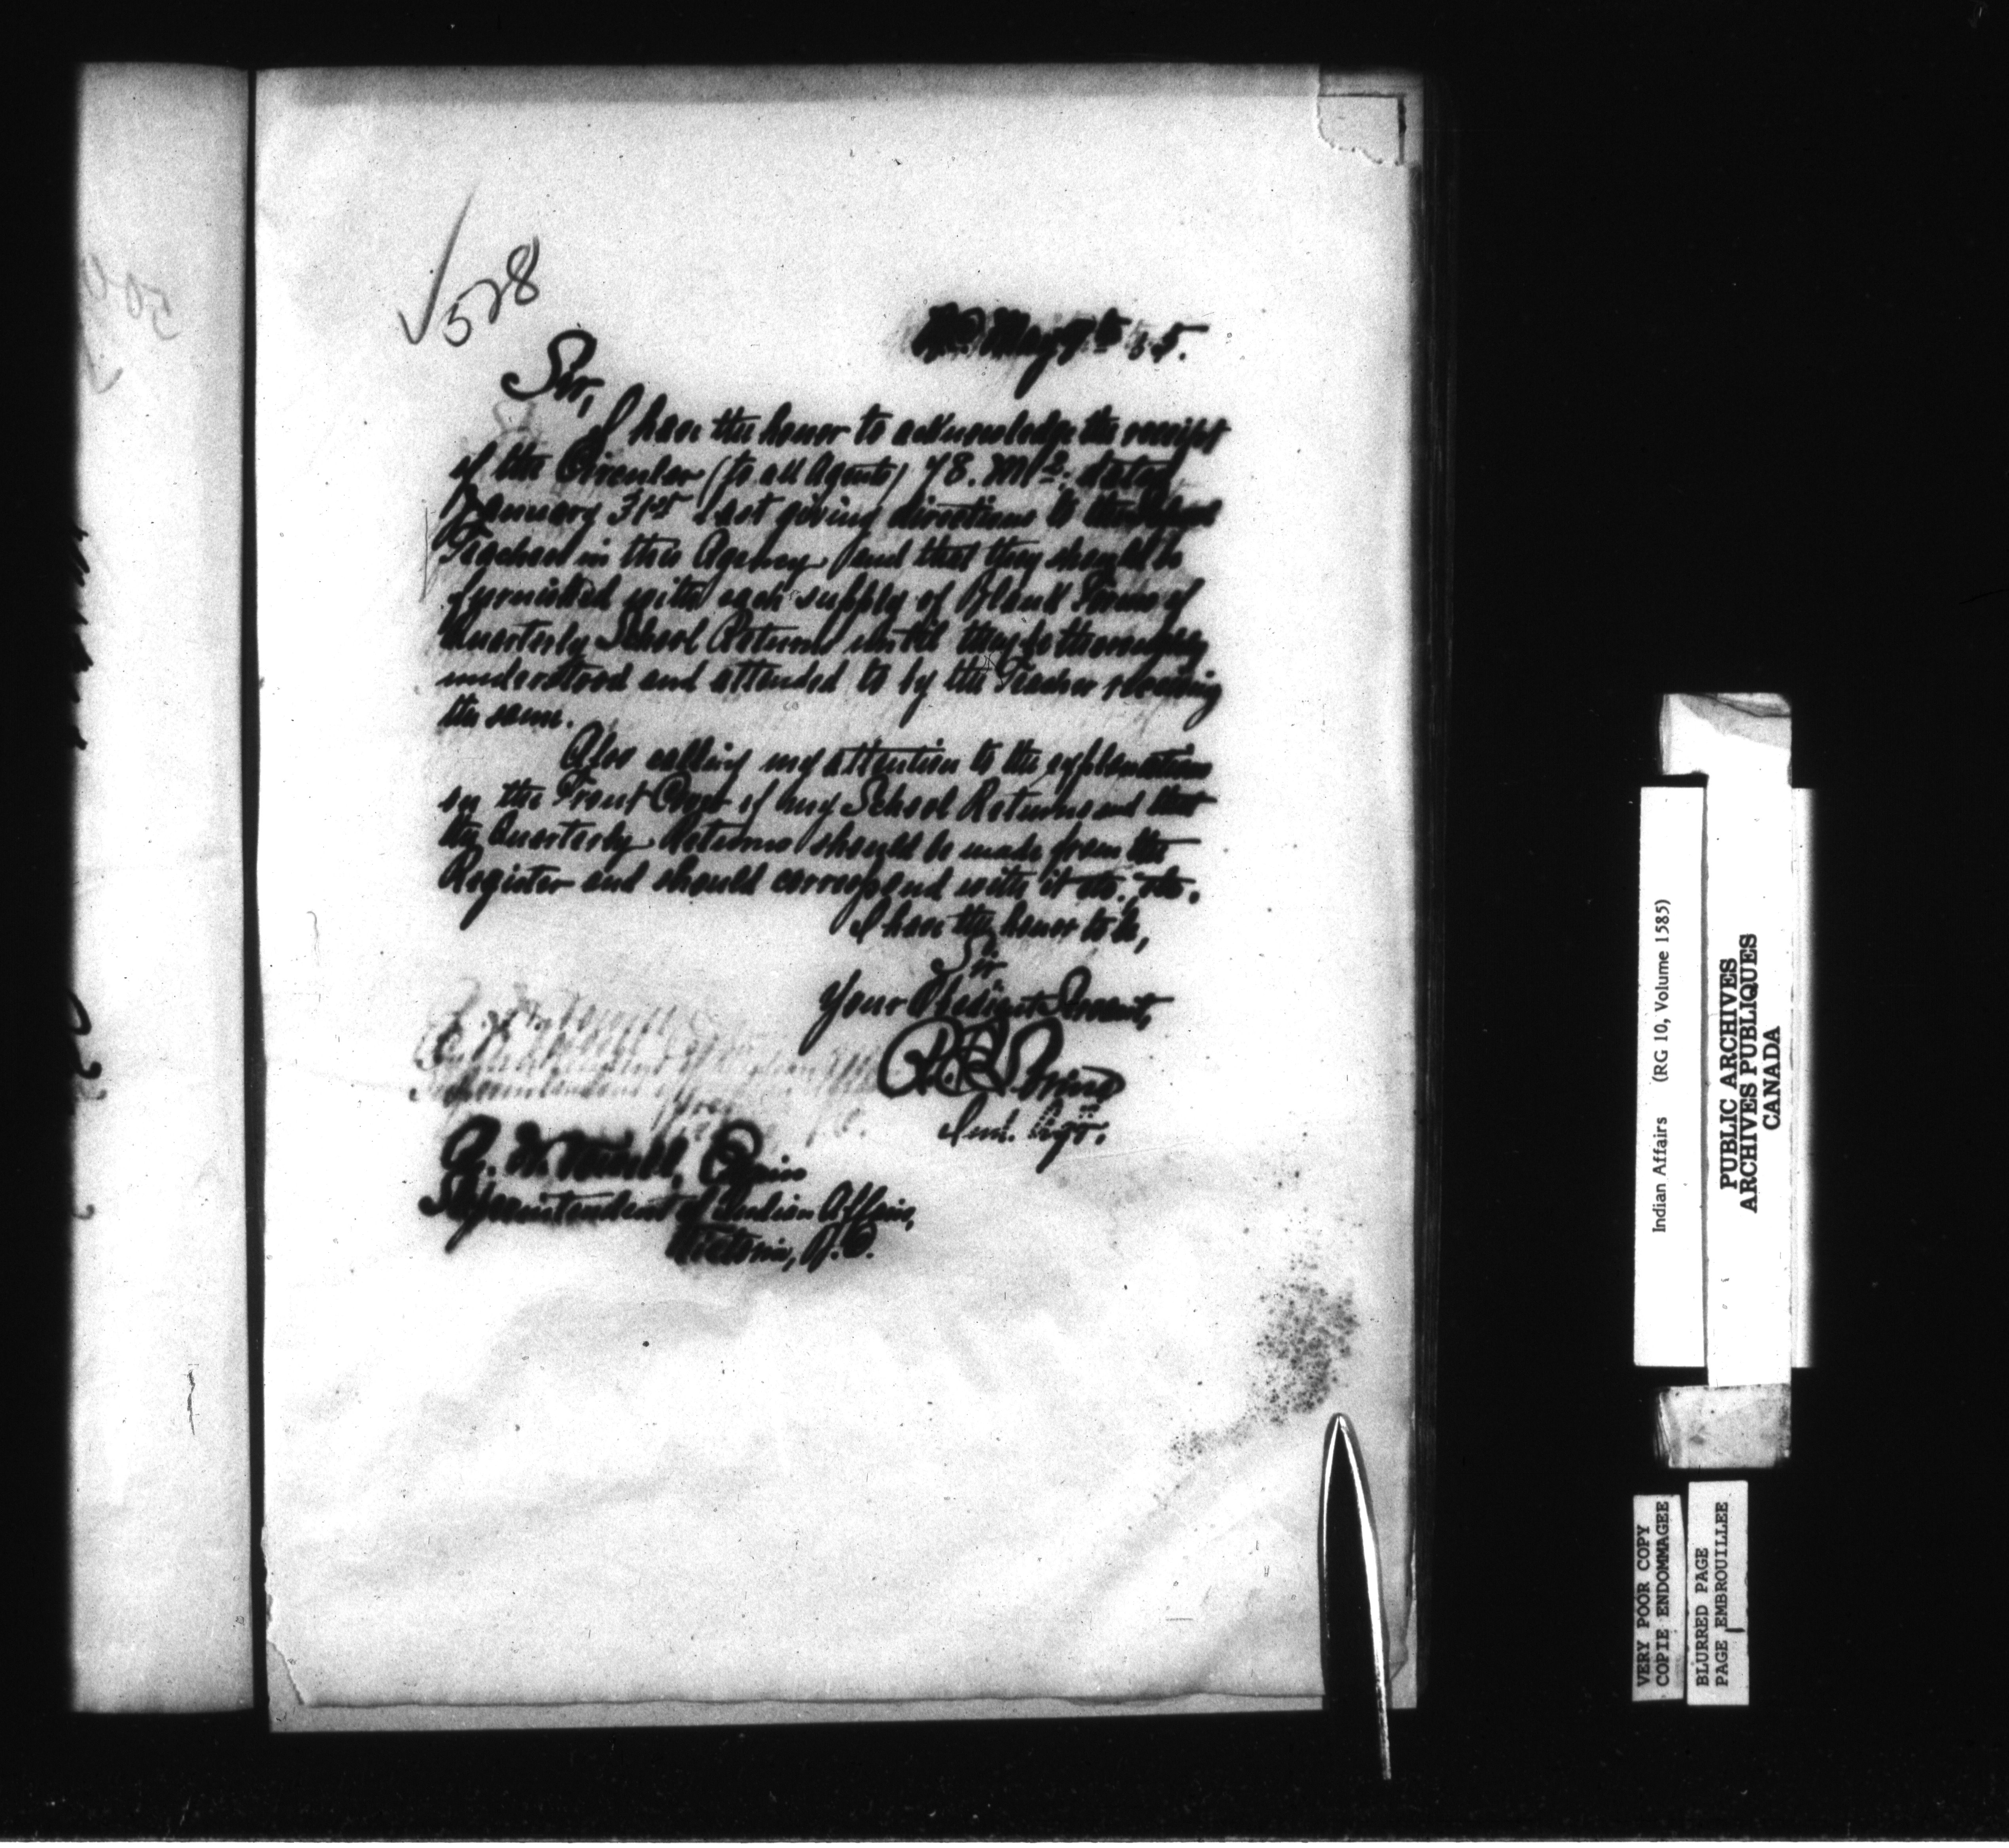 528
May 9th 5.
Sir,
I have the honor to acknowledge the receipt
of the Circular (to all Agents) 78. dated
January 31st last giving directions to the School
Teachers in this Agency and that they should be
furnished with each supply of Blank Forms of
Quarterly School Returns until they be thoroughly
understood and attended to by the Teacher receiving
the same.
Also calling my attention to the explanations
on the Front Cover of my School Returns and that
the Quarterly Returns should be made from the
Register and should correspond with it etc., etc.
I have the honor to be,
Sir
Your Obedient Servant,
Ind. Agt.
A. W. Vowell, Esquire
Superintendent of Indian Affairs,
Victoria, B.C.
Indian Affairs (RG 10, Volume 1585)
PUBLIC ARCHIVES
ARCHIVES PUBLIQUES
CANADA
VERY POOR COPY
COPIE ENDOMMAGEE
BLURRED PAGE
PAGE EMBROUILLEE